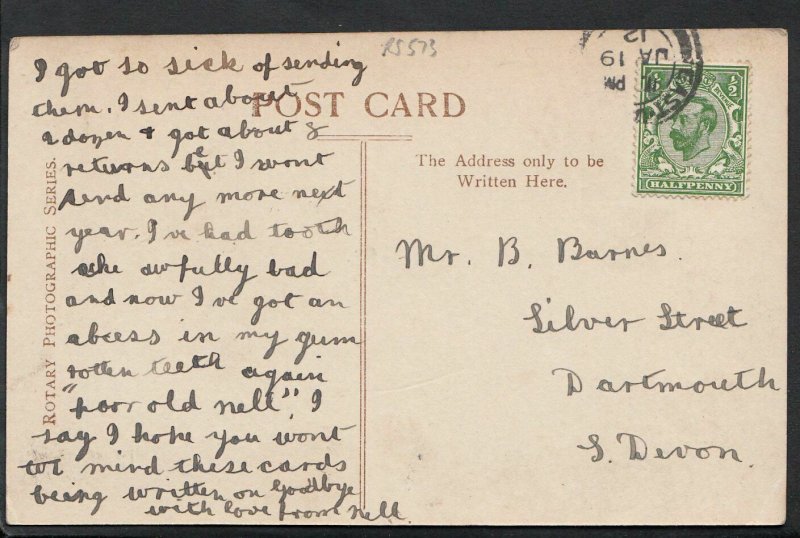 RS573
I got so sick of sending
them. I sent about
a dozen & got about 8
returns but I wont
send any more next
year. I've had tooth
ache awfully bad
and now I've got an
abcess in my gum
rotten teeth again
"poor old nell". I
say I hope you wont
mind these cards
being written on Goodbye
with love from Nell.
POST CARD
ROTARY PHOTOGRAPHIC SERIES.
The Address only to be
Written Here.
HALFPENNY
JA 19
12
Mr. B. Barnes.
Silver Street
Dartmouth
S. Devon.